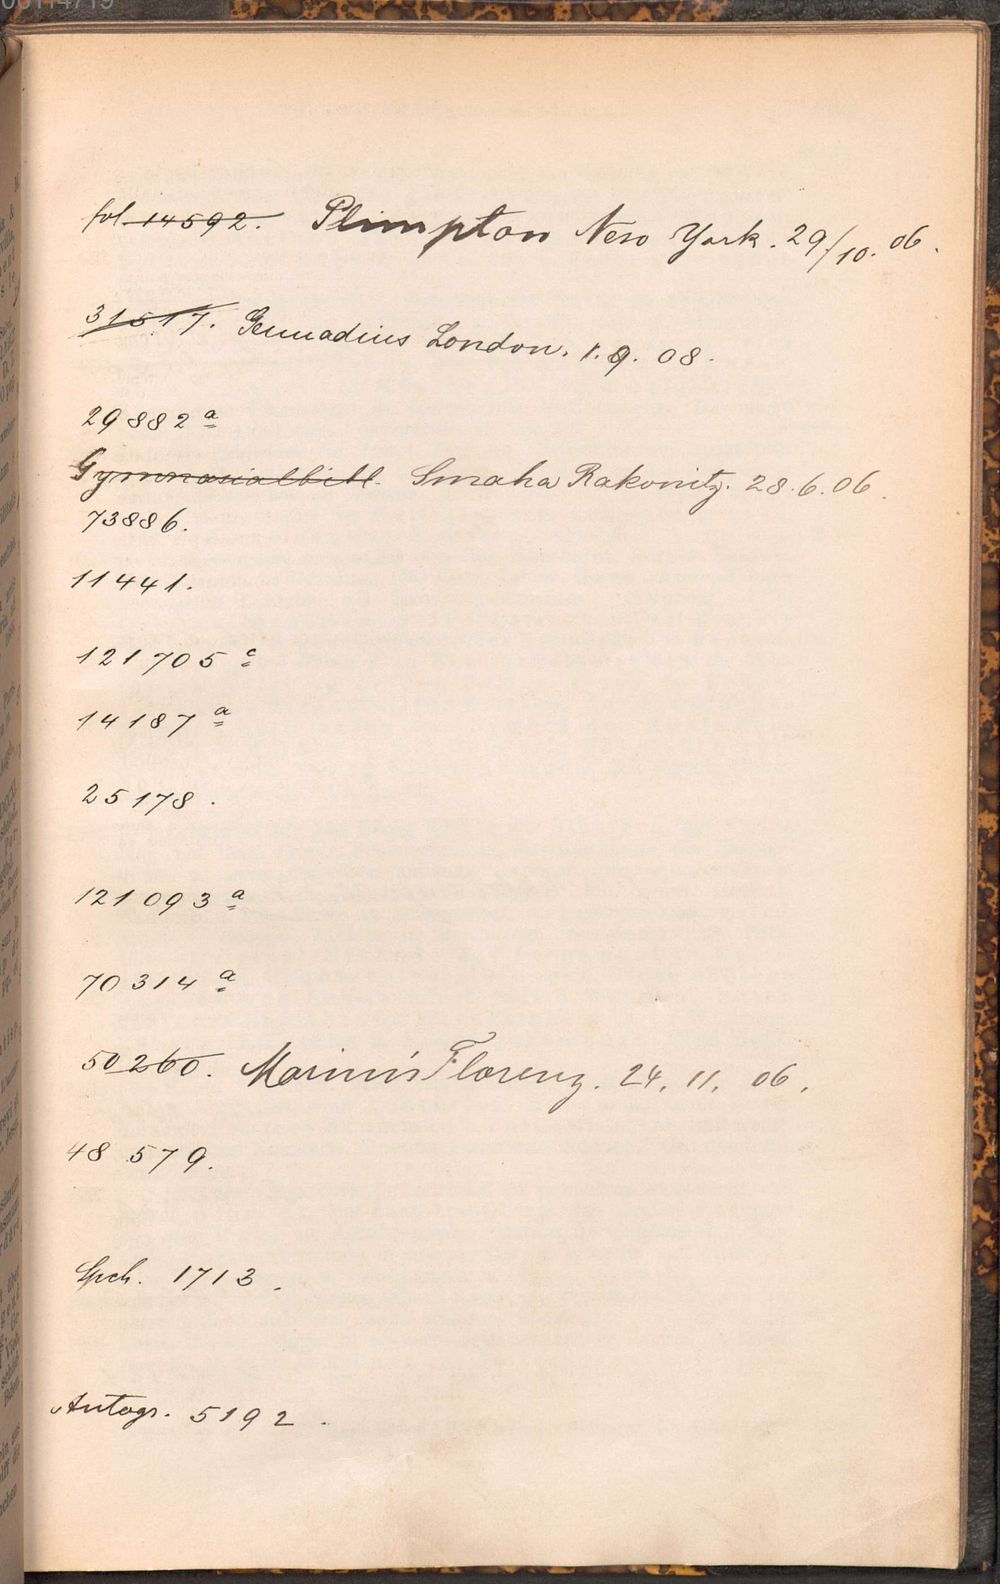 00114719
fol. 14592. Plimpton New York. 29/10. 06.
31517. Gennadius London. 1. 9. 08.
29882 a
Gymnasialbibl. Smaha Rakonitz. 28. 6. 06.
73886.
11441.
121705 c
14187 a
25178.
121093 a
70314 a
50260. Florenz. 24. 11. 06.
48 579.
1713.
Autogr. 5192.